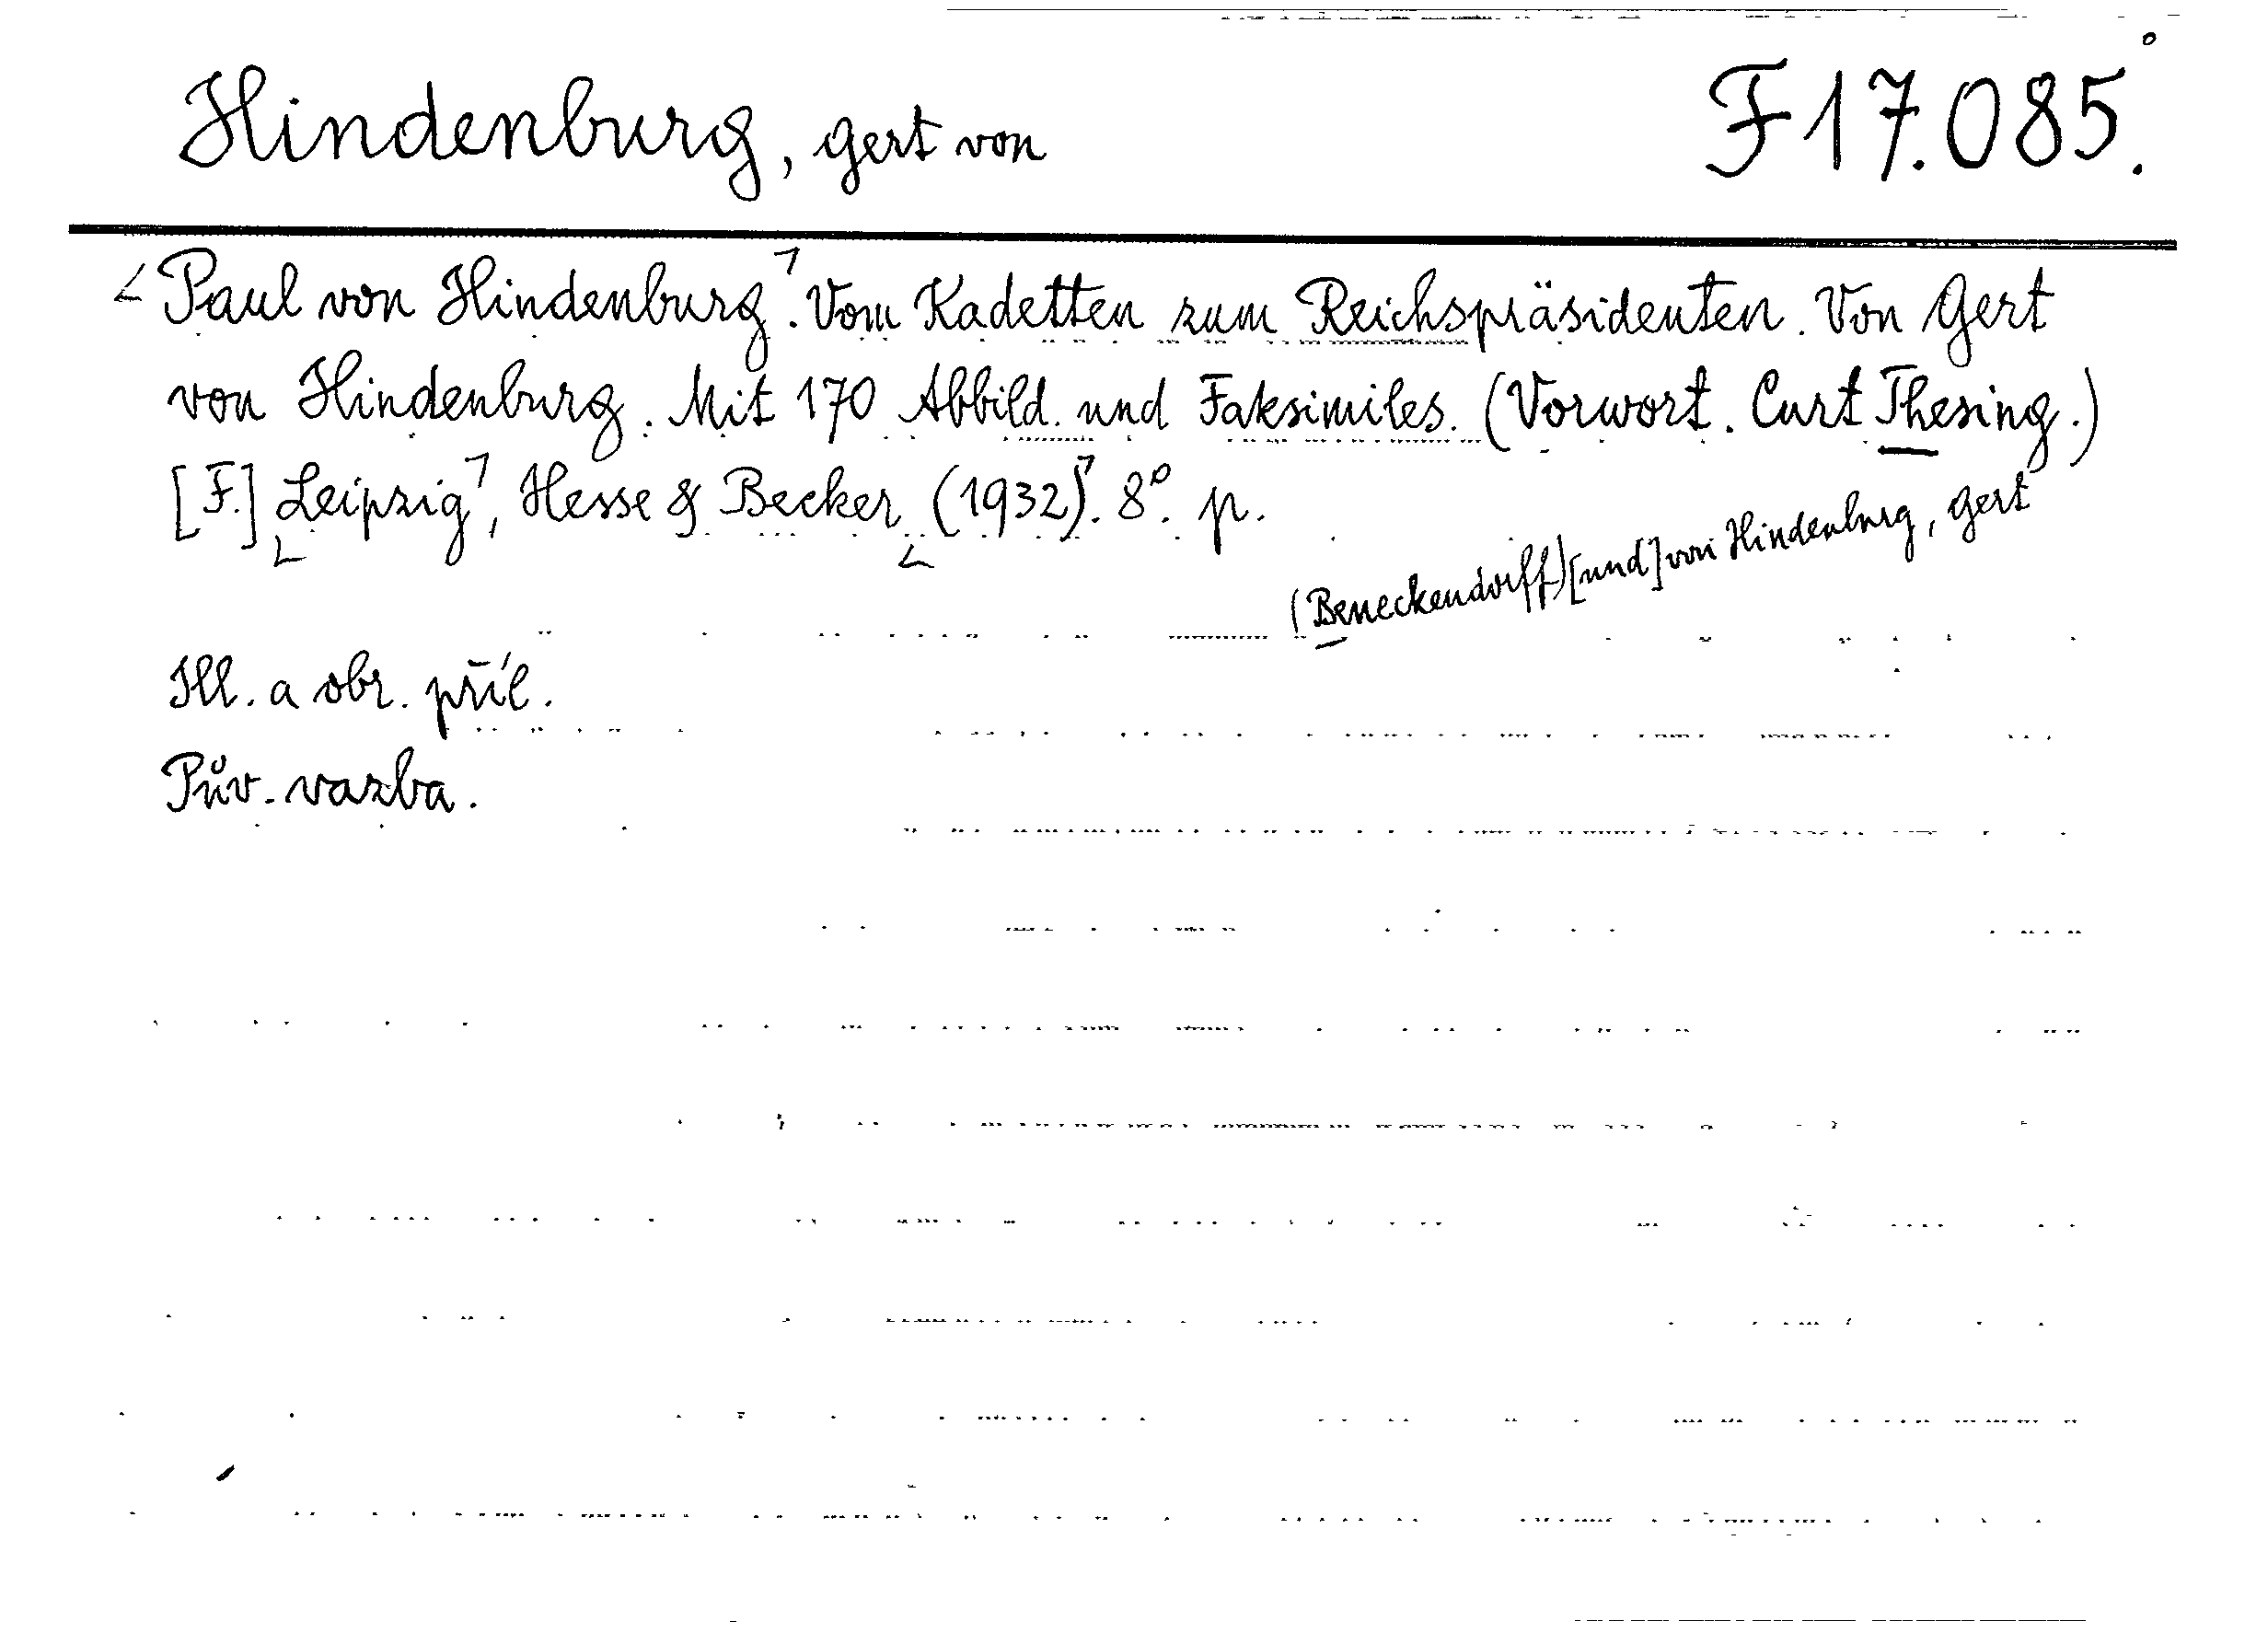 Hindenburg, Gert von
F 17.085.
Paul von Hindenburg. Vom Kadetten zum Reichspräsidenten. Von Gert
von Hindenburg. Mit 170 Abbild. und Faksimiles. (Vorwort. Curt Thesing.)
[F.] Leipzig, Hesse & Becker (1932). 8°. p.
(Beneckendorff) [und] von Hindenburg, Gert
Ill. a obr. příl.
Pův. vazba.